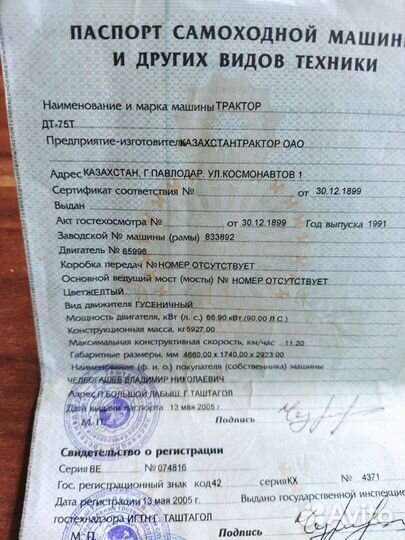 ПАСПОРТ САМОХОДНОЙ МАШИНЫ
И ДРУГИХ ВИДОВ ТЕХНИКИ
Наименование и марка машины ТРАКТОР
ДТ-75Т
Предприятие-изготовитель КАЗАХСТАНТРАКТОР ОАО
Адрес КАЗАХСТАН, Г.ПАВЛОДАР. УЛ.КОСМОНАВТОВ 1
Сертификат соответствия № от 30.12.1899
Выдан
Акт гостехосмотра № , от 30.12.1899 Год выпуска 1991
Заводской № машины (рамы) 833892
Двигатель № 65996
Коробка передач № НОМЕР ОТСУТСТВУЕТ
Основной ведущий мост (мосты) № НОМЕР ОТСУТСТВУЕТ
Цвет ЖЕЛТЫЙ
Вид движителя ГУСЕНИЧНЫЙ
Мощность двигателя, кВт (л. с.) 66.90 кВт (90.00 Л.С.)
Конструкционная масса, кг 5927.00
Максимальная конструктивная скорость, км/час 11.20
Габаритные размеры, мм 4660.00 x 1740.00 x 2923.00
Наименование (ф. и о.) покупателя (собственника) машины
ЧЕЛБОГАШЕВ ВЛАДИМИР НИКОЛАЕВИЧ
Адрес П.БОЛЬШОЙ ЛАБЫШ, Г.ТАШТАГОЛ
Дата выдачи паспорта 13 мая 2005 г.
М. П. Подпись
Свидетельство о регистрации
Серия ВЕ № 074816
Гос. регистрационный знак код 42 серия КХ № 4371
Дата регистрации 13 мая 2005 г. Выдано государственной инспекцие
гостехнадзора ИГТН Г. ТАШТАГОЛ
М. П. Подпись
Avito